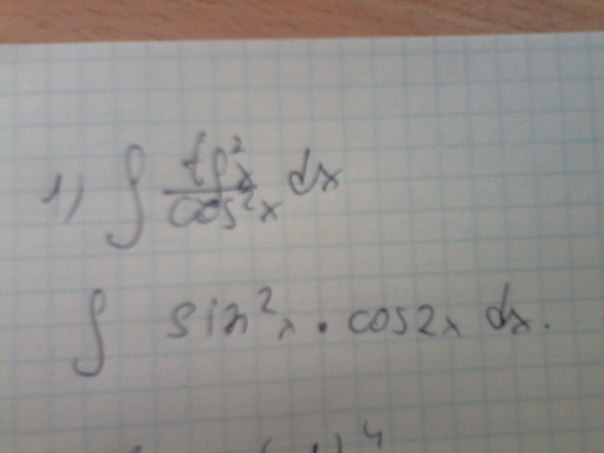 1) ∫ tg²x / cos²x dx
∫ sin²x · cos2x dx.